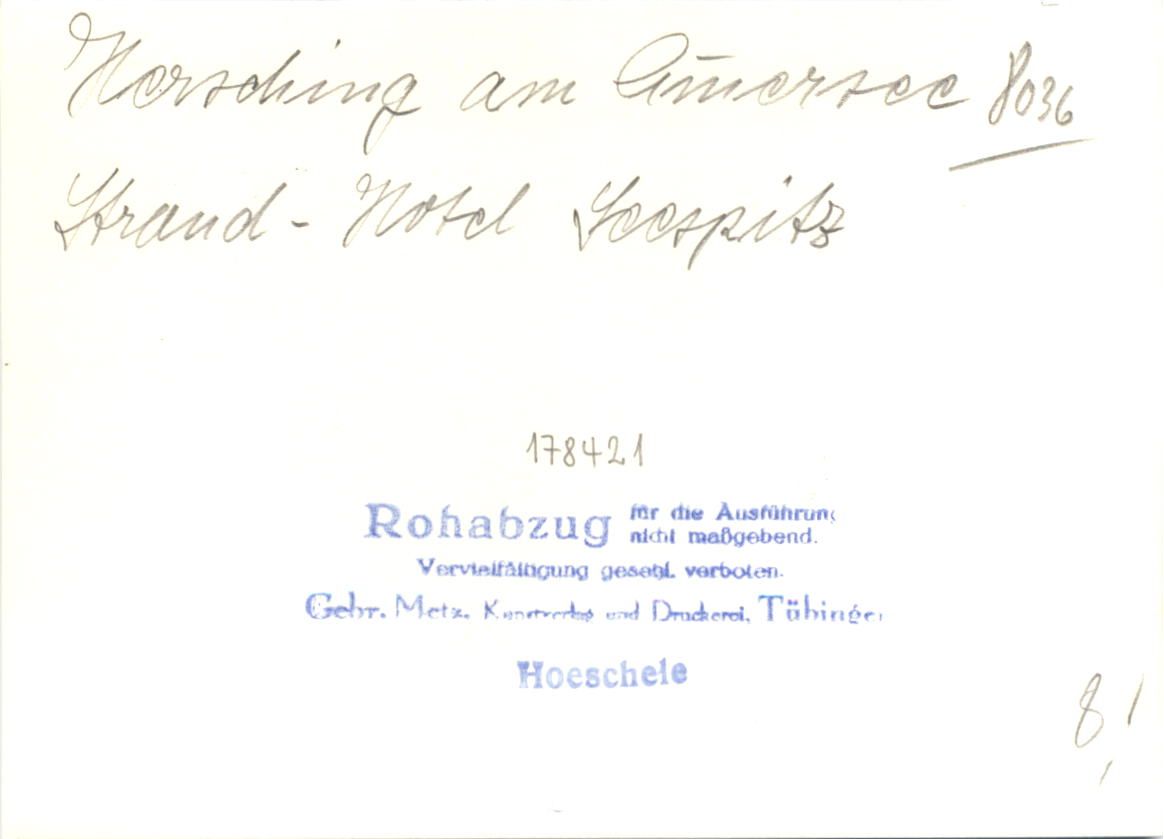 Hersching am Am̄ersee 8036
Strand-Hotel Seespitz
178421
Rohabzug für die Ausführung
nicht maßgebend.
Vervielfältigung gesetzl. verboten.
Gebr. Metz, Kunstverlag und Druckerei, Tübingen
Hoeschele
8